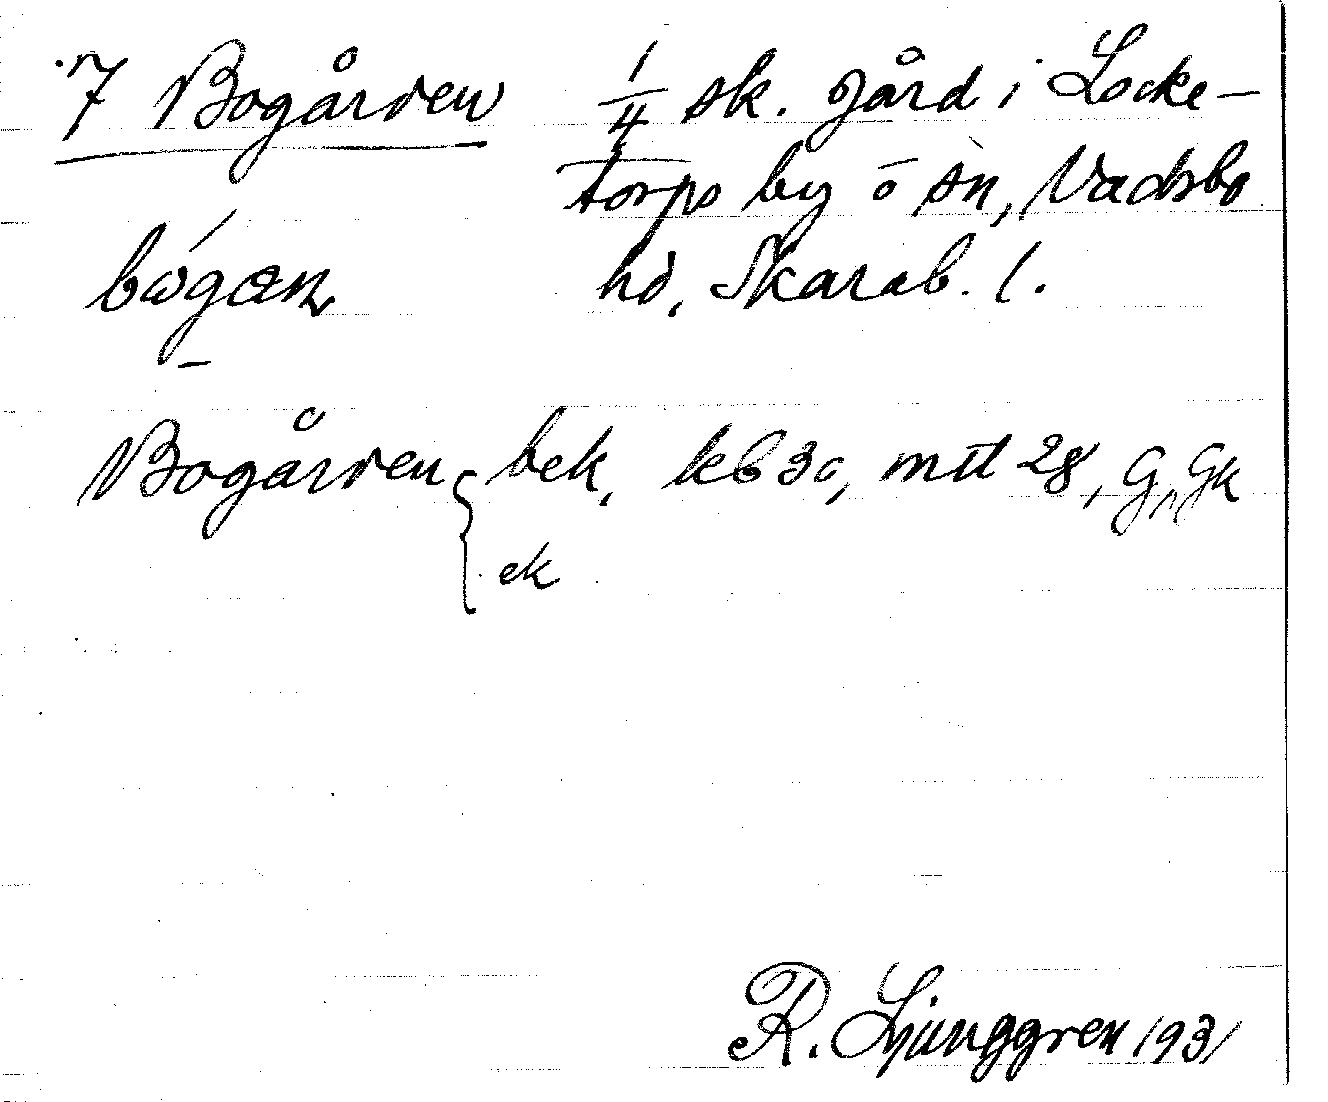 7 Bogården 1/4 sk. gård i Locke-
torps by o sn, Vadsbo
bógæn hd, Skarab. l.
Bogården { bek, kb 30, mtl 28, G, Gk
ek
R. Ljunggren 1931